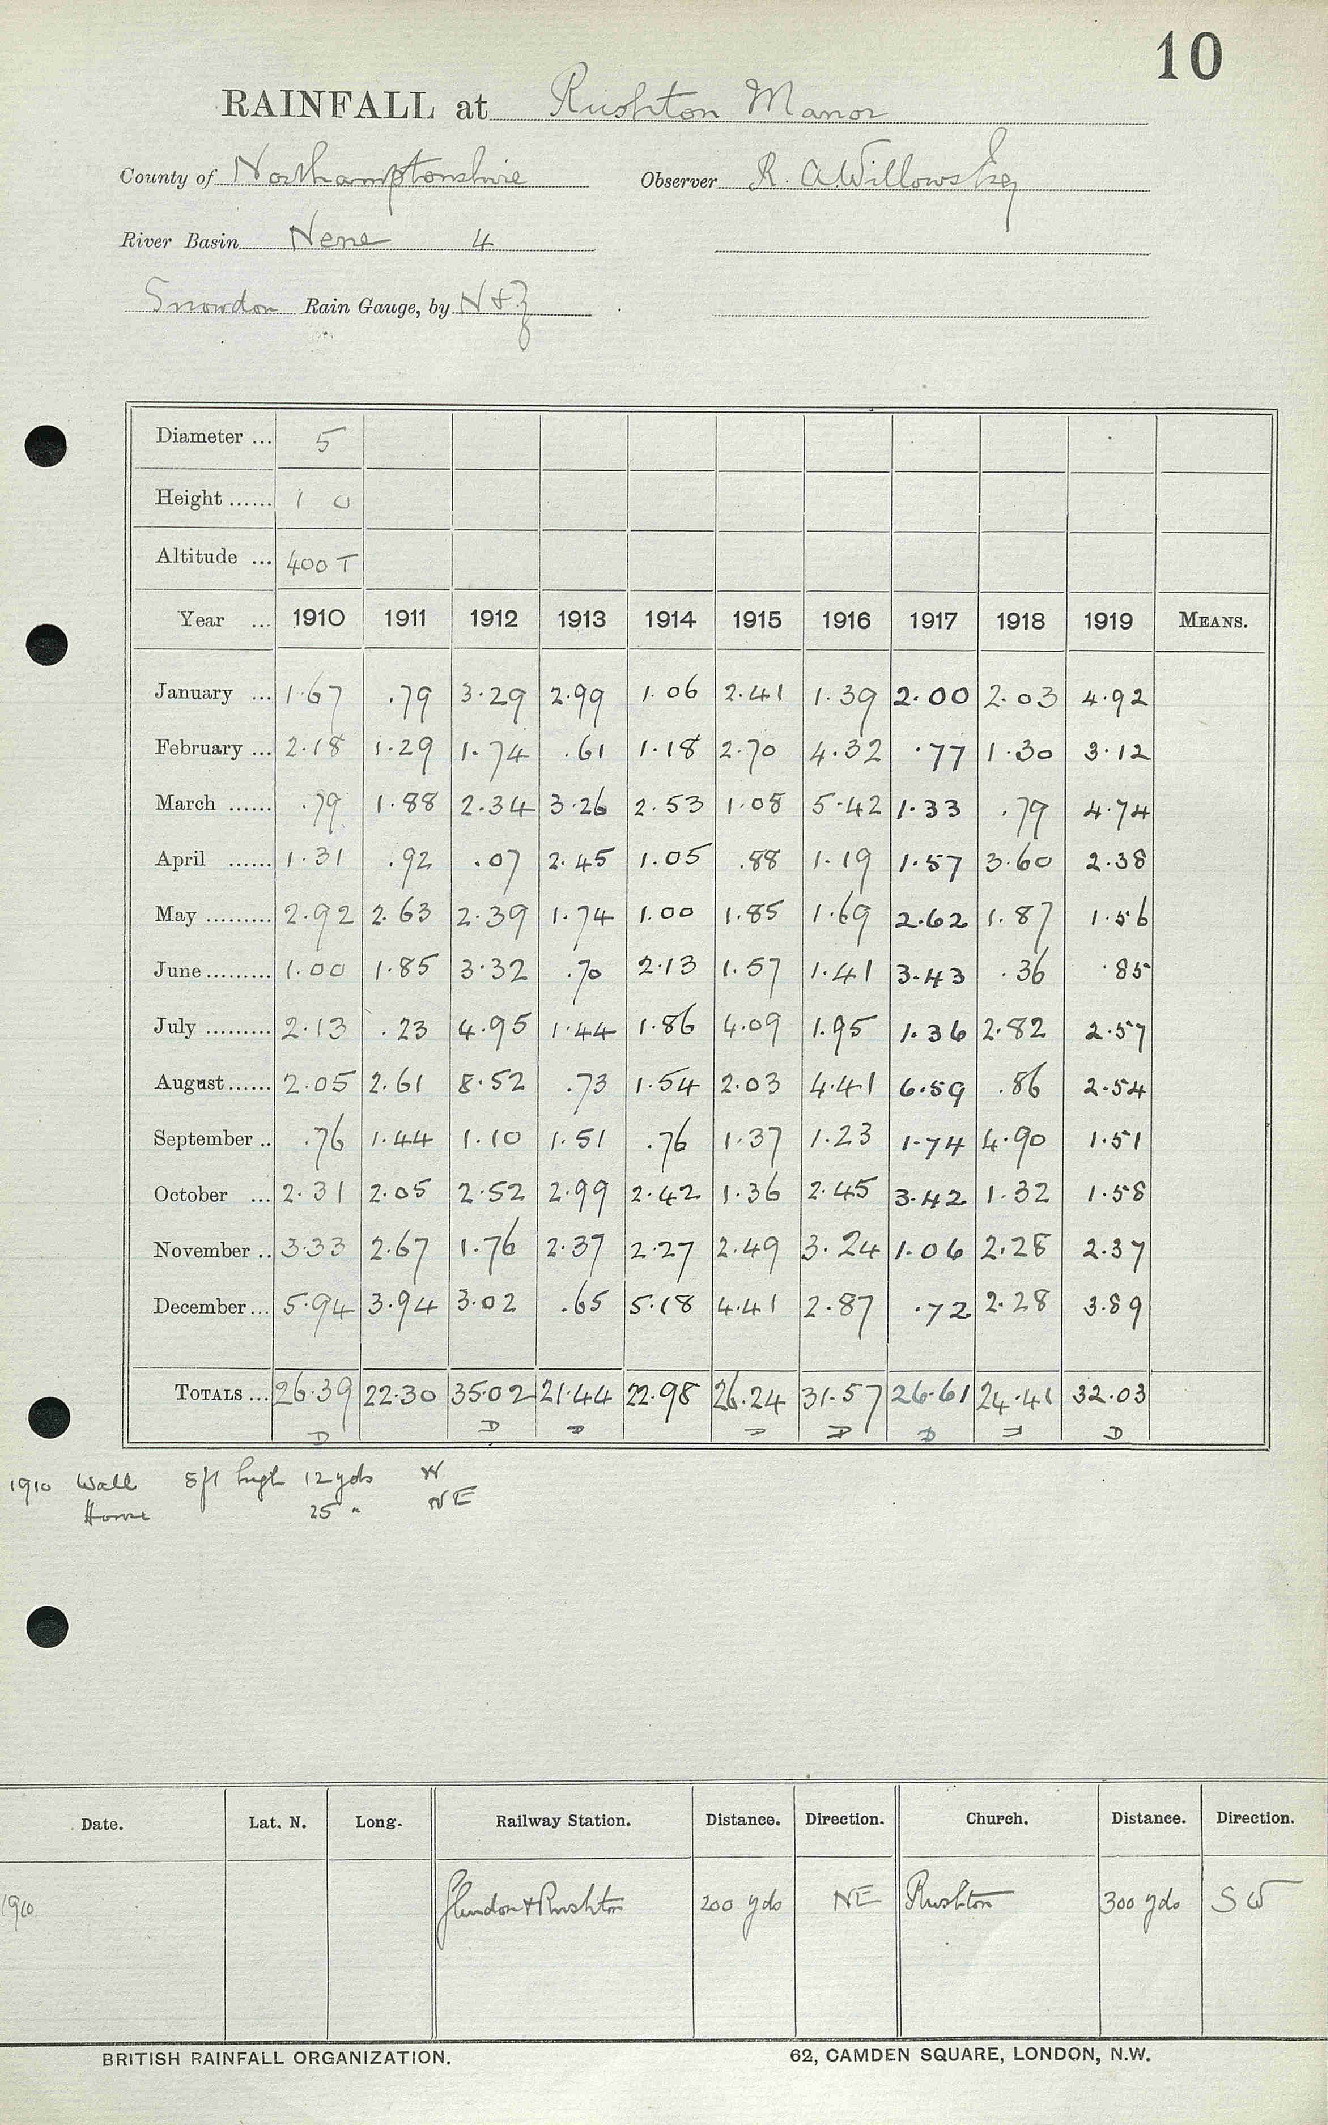 10
RAINFALL at Rushton Manor
County of Northamptonshire Observer R. A. Willows Esq
River Basin Nene 4
Snowdon Rain Gauge, by N & Z
Diameter ... 5
Height ...... 1 0
Altitude ... 400 T
Year ... 1910 1911 1912 1913 1914 1915 1916 1917 1918 1919 MEANS.
January ... 1.67 .79 3.29 2.99 1.06 2.41 1.39 2.00 2.03 4.92
February ... 2.18 1.29 1.74 .61 1.18 2.70 4.32 .77 1.30 3.12
March ...... .79 1.88 2.34 3.26 2.53 1.08 5.42 1.33 .79 4.74
April ...... 1.31 .92 .07 2.45 1.05 .88 1.19 1.57 3.60 2.38
May ......... 2.92 2.63 2.39 1.74 1.00 1.85 1.69 2.62 1.87 1.56
June ......... 1.00 1.85 3.32 .70 2.13 1.57 1.41 3.43 .36 .85
July ......... 2.13 .23 4.95 1.44 1.86 4.09 1.95 1.36 2.82 2.57
August ...... 2.05 2.61 8.52 .73 1.54 2.03 4.41 6.59 .86 2.54
September .. .76 1.44 1.10 1.51 .76 1.37 1.23 1.74 4.90 1.51
October ... 2.31 2.05 2.52 2.99 2.42 1.36 2.45 3.42 1.32 1.58
November .. 3.33 2.67 1.76 2.37 2.27 2.49 3.24 1.06 2.28 2.37
December ... 5.94 3.94 3.02 .65 5.18 4.41 2.87 .72 2.28 3.89
TOTALS ... 26.39 22.30 35.02 21.44 22.98 26.24 31.57 26.61 24.41 32.03
D D D D D D D D
1910 Wall 8ft high 12 yds W
House 25 " NE
Date. Lat. N. Long. Railway Station. Distance. Direction. Church. Distance. Direction.
1910 Glendon & Rushton 200 yds NE Rushton 300 yds SW
BRITISH RAINFALL ORGANIZATION. 62, CAMDEN SQUARE, LONDON, N.W.